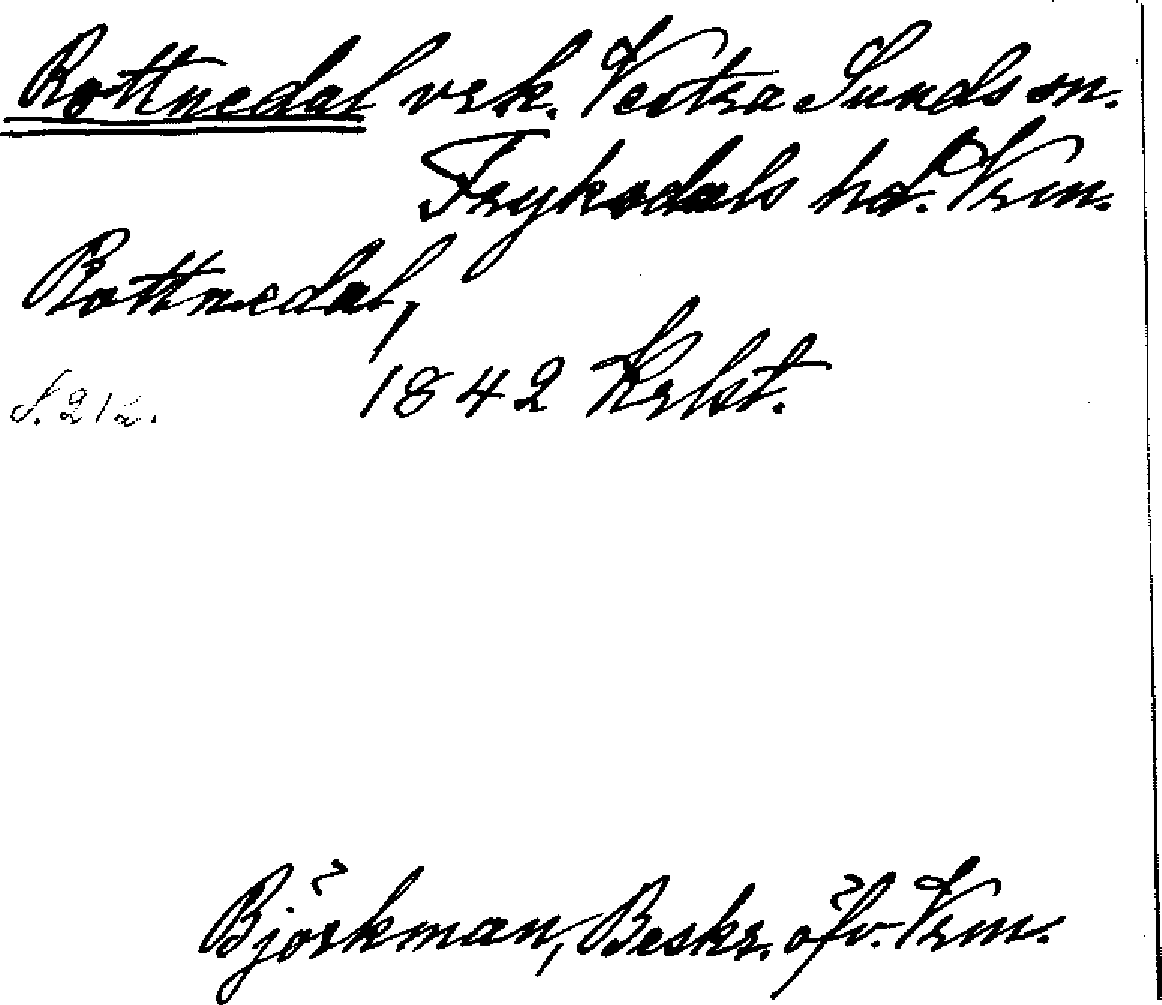 Rottnedal vrk. Vestra Sunds sn.
Fryksdals hd. Vrm.
Rottnedal,
S. 212. 1842 Krlst.
Björkman, Beskr. öfv. Vrm.